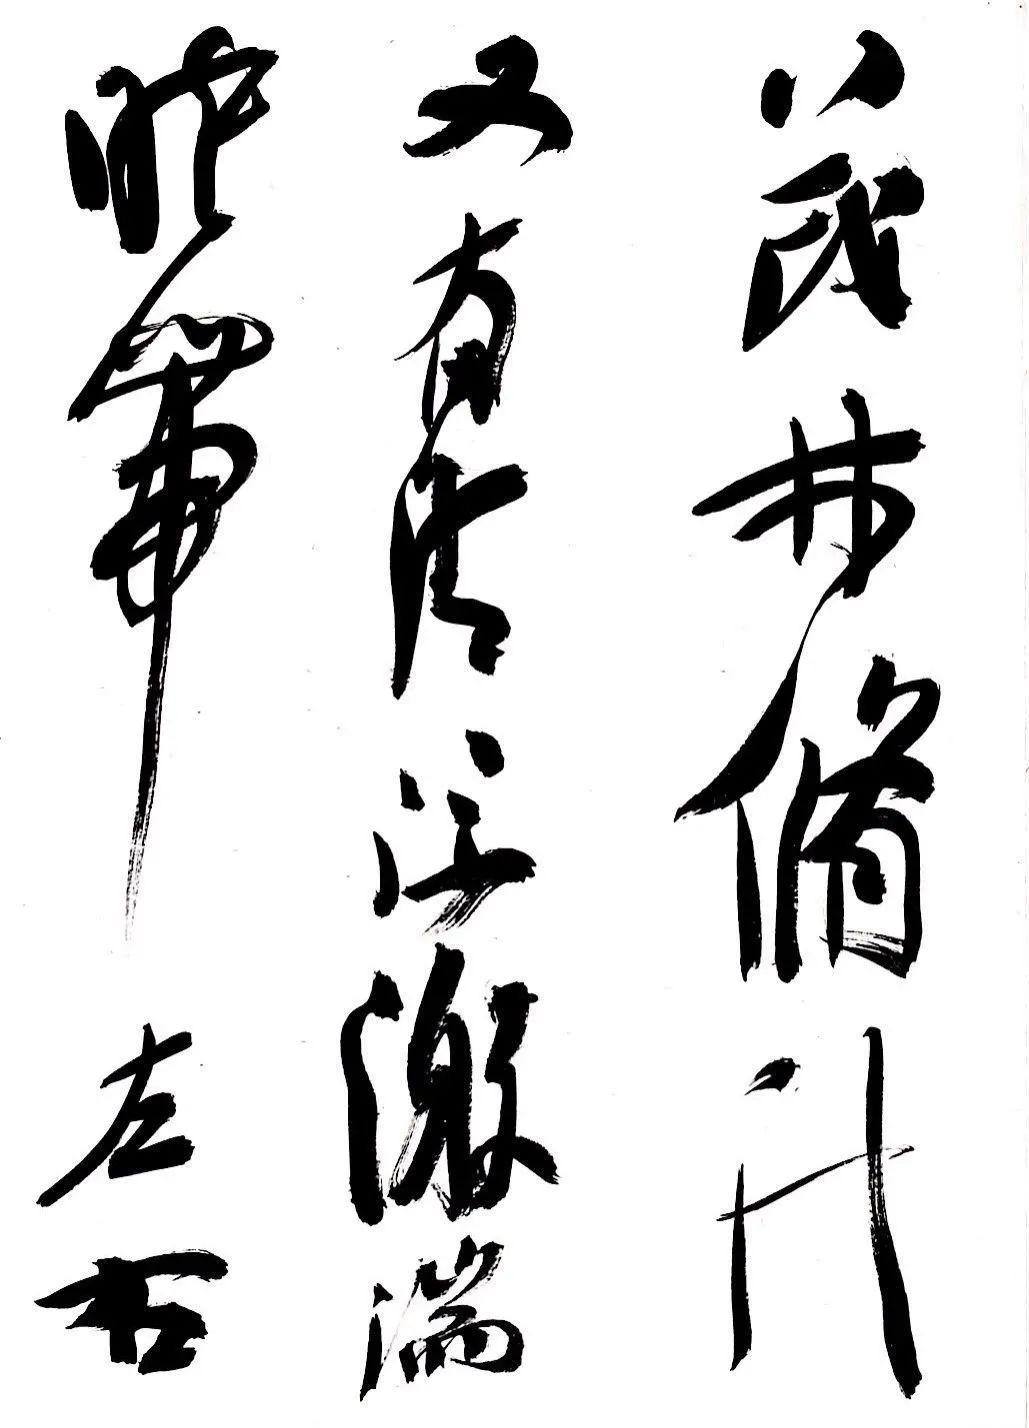 茂林脩竹
又有清流激湍
暎帶左右